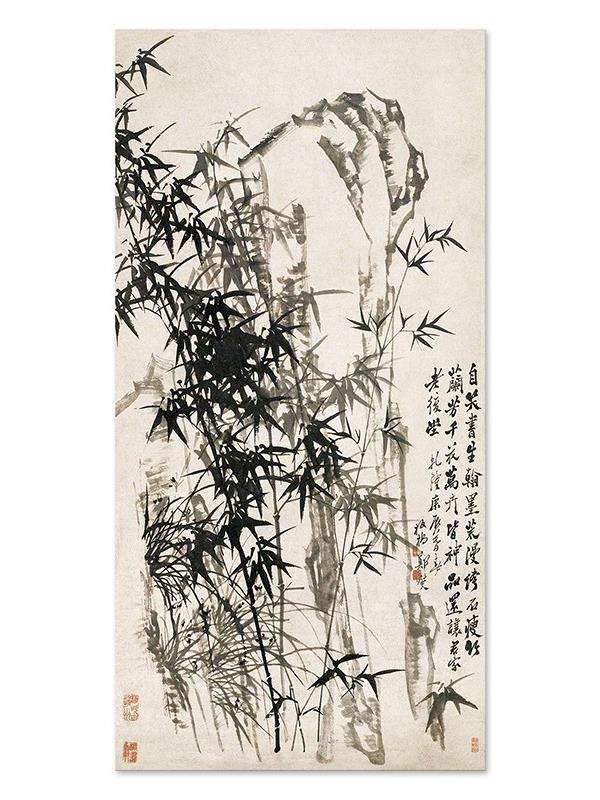 自笑書生翰墨荒漫誇石瘦竹
蘭芳千花萬卉皆神品還讓君家
老復堂 乾隆庚辰
板橋鄭燮